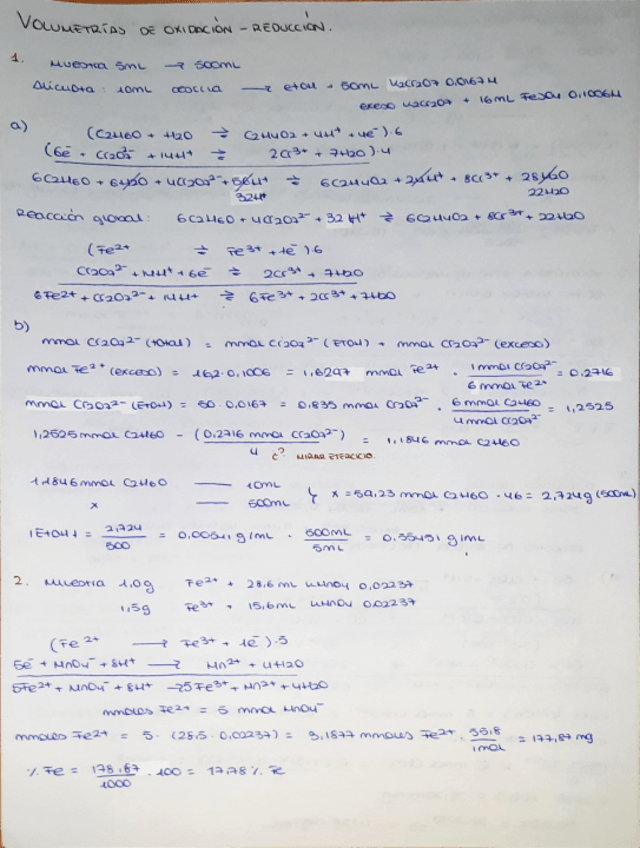 VOLUMETRÍAS DE OXIDACIÓN - REDUCCIÓN.
1. Muestra 5mL → 500mL
Alícuota: 10mL → EtOH + 50mL K2Cr2O7 0.0167M
exceso K2Cr2O7 + 16mL FeSO4 0,1006M
a) (C2H6O + H2O ⇌ C2H4O2 + 4H+ + 4e-)·6
(6e- + Cr2O7²⁻ + 14H+ ⇌ 2Cr³⁺ + 7H2O)·4
6C2H6O + 6H2O + 4Cr2O7²⁻ + 56H+ ⇌ 6C2H4O2 + 24H+ + 8Cr³⁺ + 28H2O
32H+ 22H2O
Reacción global: 6C2H6O + 4Cr2O7²⁻ + 32H+ ⇌ 6C2H4O2 + 8Cr³⁺ + 22H2O
(Fe²⁺ ⇌ Fe³⁺ + 1e-)6
Cr2O7²⁻ + 14H+ + 6e- ⇌ 2Cr³⁺ + 7H2O
6Fe²⁺ + Cr2O7²⁻ + 14H+ ⇌ 6Fe³⁺ + 2Cr³⁺ + 7H2O
b)
mmol Cr2O7²⁻ (total) = mmol Cr2O7²⁻ (EtOH) + mmol Cr2O7²⁻ (exceso)
mmol Fe²⁺ (exceso) = 16,2·0,1006 = 1,6297 mmol Fe²⁺ · 1 mmol Cr2O7²⁻ / 6 mmol Fe²⁺ = 0.2716
mmol Cr2O7²⁻ (EtOH) = 50·0,0167 = 0,835 mmol Cr2O7²⁻ · 6 mmol C2H6O / 4 mmol Cr2O7²⁻ = 1,2525
1,2525 mmol C2H6O - (0,2716 mmol Cr2O7²⁻) / 4 = 1,1846 mmol C2H6O
¿? MIRAR EJERCICIO.
1,1846 mmol C2H6O — 10mL
x — 500mL } x = 59,23 mmol C2H6O · 46 = 2,724g (500mL)
[EtOH] = 2,724 / 500 = 0,0054 g/mL · 500mL / 5mL = 0,55451 g/mL
2. Muestra 1,0g Fe²⁺ + 28,6mL KMnO4 0,02237
1,5g Fe³⁺ + 15,6mL KMnO4 0.02237
(Fe²⁺ → Fe³⁺ + 1e-)·5
5e- + MnO4- + 8H+ → Mn²⁺ + 4H2O
5Fe²⁺ + MnO4- + 8H+ → 5Fe³⁺ + Mn²⁺ + 4H2O
mmoles Fe²⁺ = 5 mmol MnO4-
mmoles Fe²⁺ = 5·(28,5·0,02237) = 3,1877 mmoles Fe²⁺ · 55,8 / 1mol = 177,87 mg
% Fe = 178,87 / 1000 · 100 = 17,78% Fe